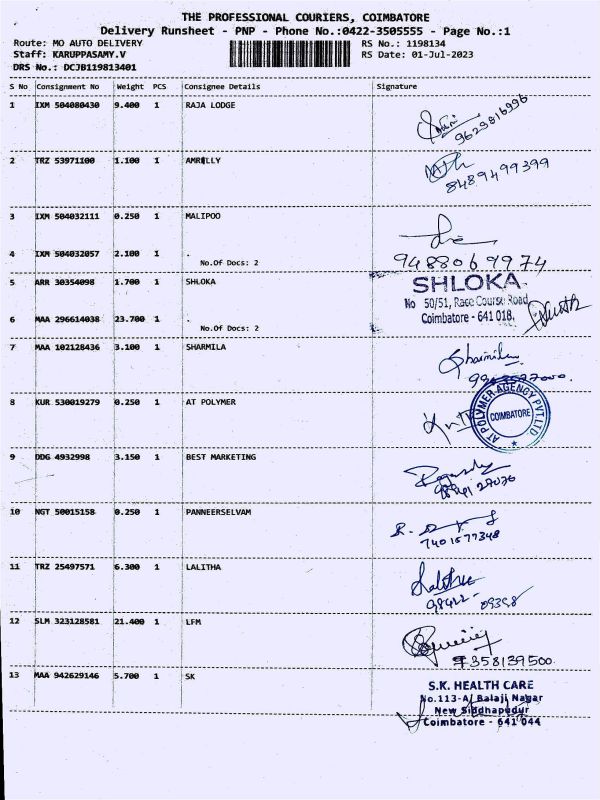 THE PROFESSIONAL COURIERS, COIMBATORE
Delivery Runsheet - PNP - Phone No.:0422-3505555 - Page No.:1
Route: MO AUTO DELIVERY RS No.: 1198134
Staff: KARUPPASAMY.V RS Date: 01-Jul-2023
DRS No.: DCJB119813401
S No Consignment No Weight PCS Consignee Details Signature
1 IXM 504080430 9.400 1 RAJA LODGE
9629816996
2 TRZ 53971100 1.100 1 AMRILLY
8489499399
3 IXM 504032111 0.250 1 MALIPOO
4 IXM 504032057 2.100 1 .
No.Of Docs: 2
9488069974
5 ARR 30354098 1.700 1 SHLOKA
SHLOKA
No 50/51, Race Course Road,
Coimbatore - 641 018.
6 MAA 296614038 23.700 1 .
No.Of Docs: 2
7 MAA 102128436 3.100 1 SHARMILA
Sharmila
8 KUR 530019279 0.250 1 AT POLYMER
AT POLYMER AGENCY PVT LTD
COIMBATORE
9 DDG 4932998 3.150 1 BEST MARKETING
10 NGT 50015158 0.250 1 PANNEERSELVAM
7401677348
11 TRZ 25497571 6.300 1 LALITHA
Lalitha
98422 - 09398
12 SLM 323128581 21.400 1 LFM
7358139500
13 MAA 942629146 5.700 1 SK
S.K. HEALTH CARE
No.113-A/ Balaji Nagar
New Siddhapudur
Coimbatore - 641 044